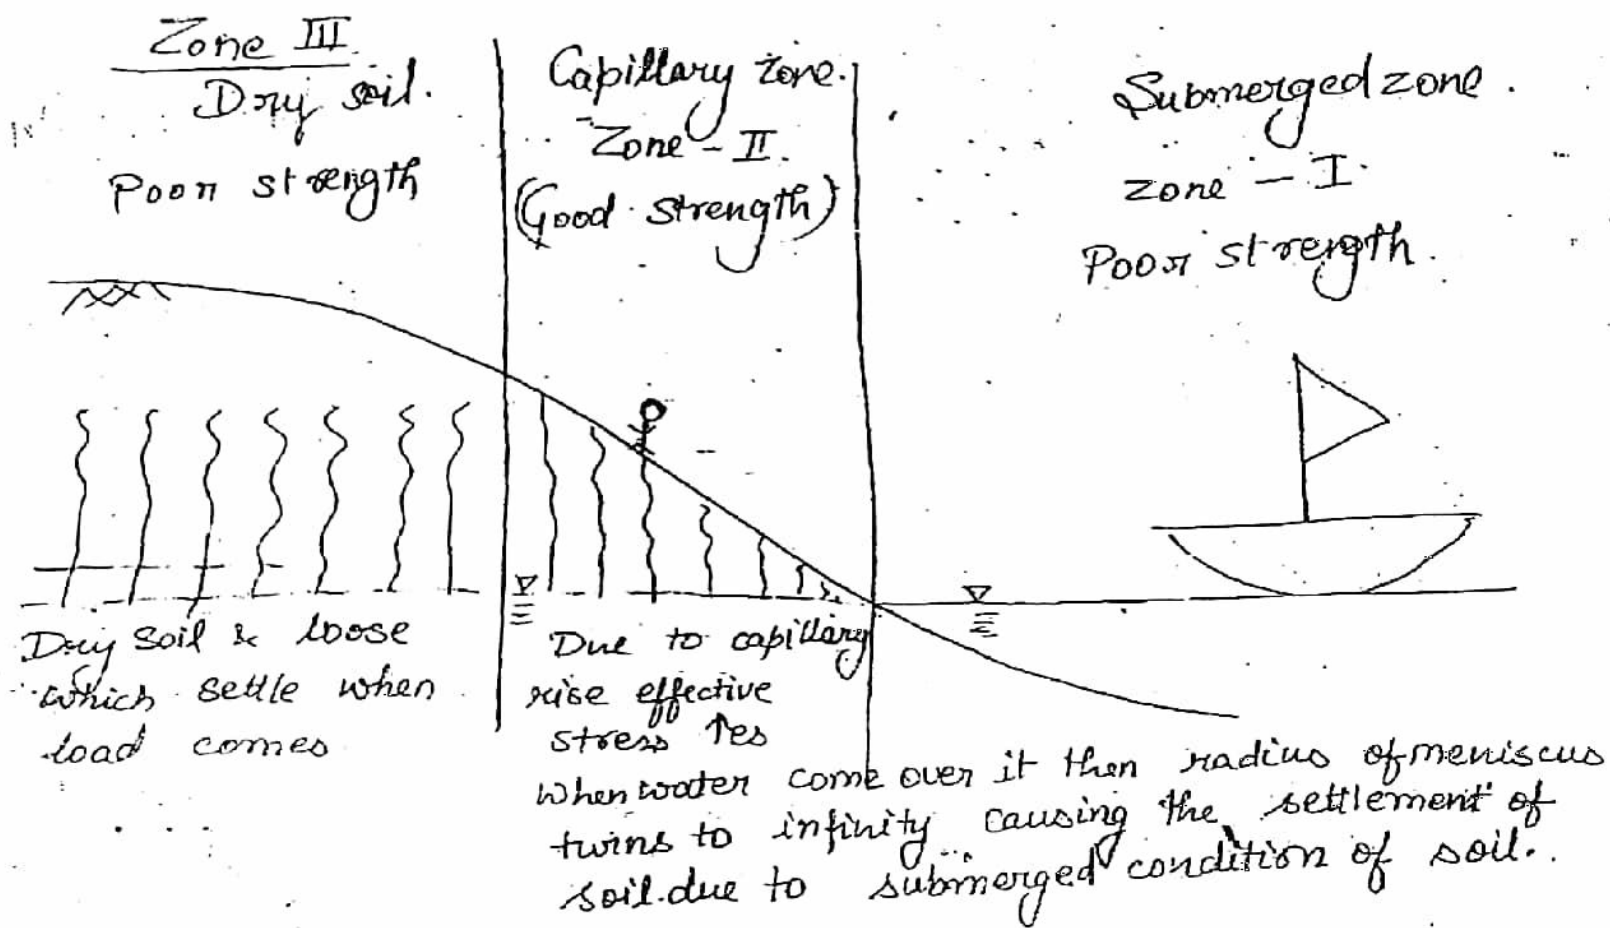 Zone III
Dry soil.
Poor strength
Capillary zone.
Zone - II.
(Good strength)
Submerged zone.
zone - I.
Poor strength.
Dry soil & loose
which settle when
load comes
Due to capillary
rise effective
stress ↑es
when water come over it then radius of meniscus
twins to infinity causing the settlement of
soil due to submerged condition of soil.